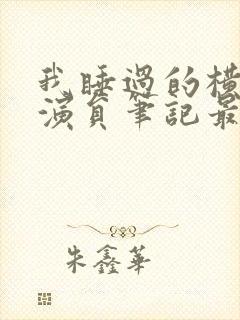 我睡過的橫
演員筆記最
朱鑫華